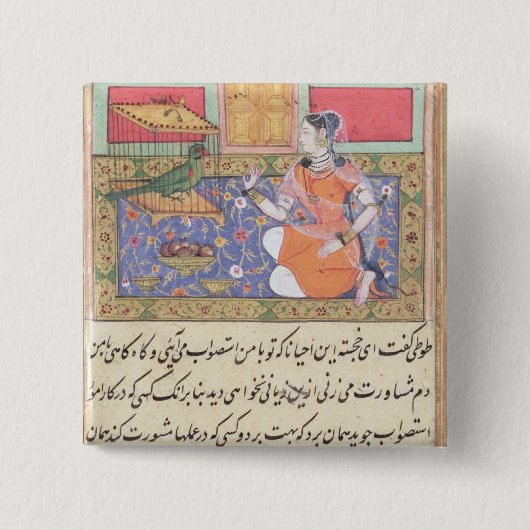 طوطی گفت ای خجسته این احیانا که تو با من استصواب می آیئی و گاه گاهی با من
دم مشاورت می زنی ازین زیانی نخواهی دید بنا برانک کسی که در کار امو
استصواب جوید همان برد که بهت برد و کسی که در عملها مشورت کند همان